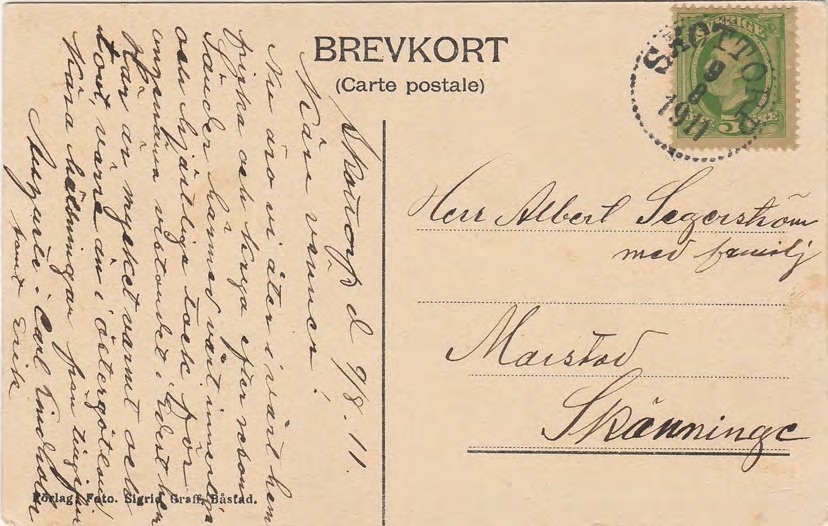 BREVKORT
(Carte postale)
SVERIGE
5
SKOTTORP
9
8
1911
Skottorp d 9/8. 11.
Kära vänner!
Nu äro vi åter i vårt hem
friska och kryga efter resan
Sänder härmed vårt innerliga
och hjärtliga tack för
angenäma vistandet i Edert hem
Här är mycket varmt och
tort, värre än i Östergötland
Kära hälsningar från
Augusta, Carl
samt Erik
Herr Albert Segerström
med familj
Marstad
Skänninge
Förlag: Foto. Sigrid Graff, Båstad.